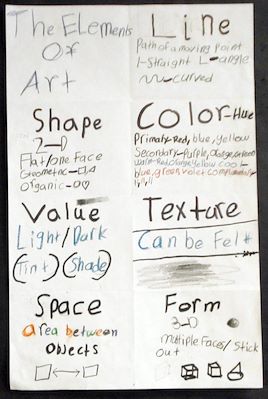 The Elements
Of
Art
Line
Path of a moving point
|-Straight L-angle
-curved
Shape
2-D
Flat/one Face
Geometric-
organic-
Color-Hue
Primary-Red, blue, yellow
Secondary-Purple, Orange, Green
Warm-Red, Orange, Yellow Cool-
blue, green, violet
Value
Light/Dark
(Tint) (Shade)
Texture
Can be Felt
Space
area between
Objects
Form
3-D
multiple Faces/Stick
Out